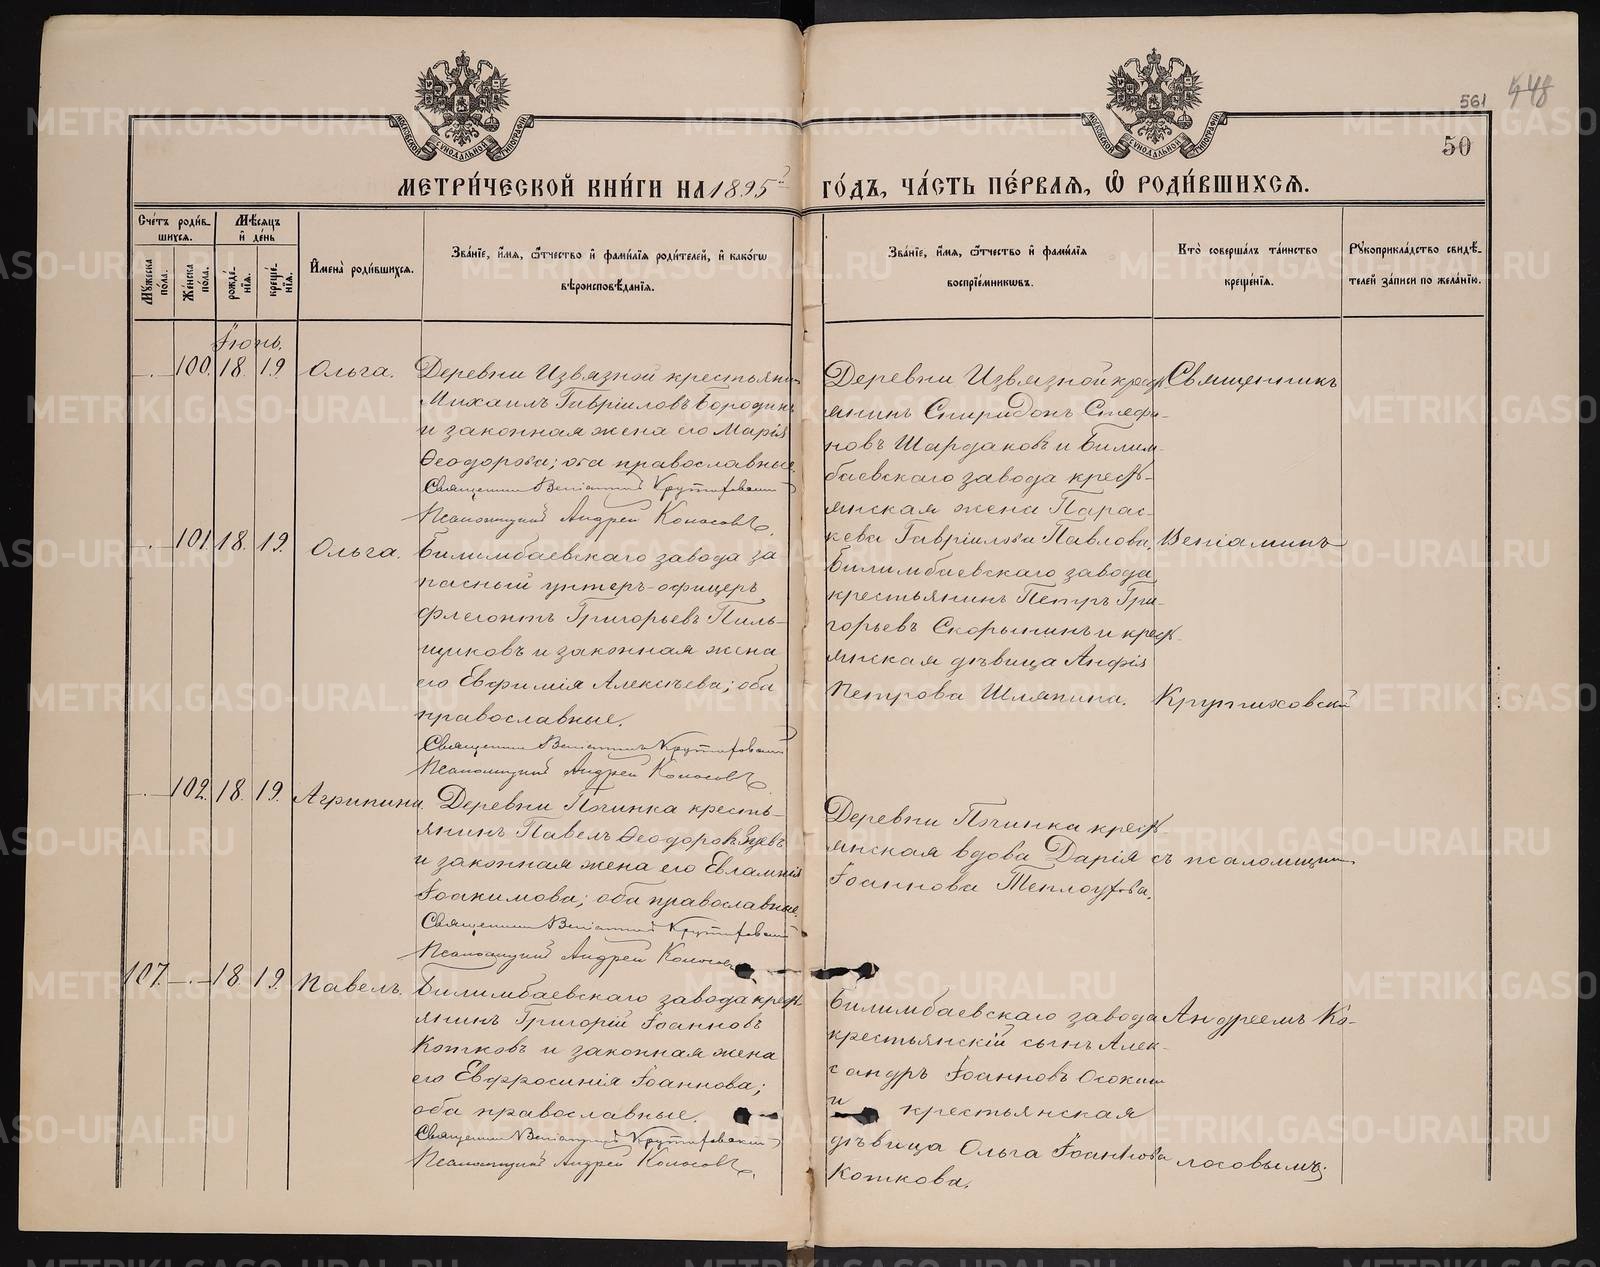 561 448
50
МОСКОВСКОЙ СѴНОДАЛЬНОЙ ТИПОГРАФІИ
МОСКОВСКОЙ СѴНОДАЛЬНОЙ ТИПОГРАФІИ
МЕТРИ́ЧЕСКОЙ КНИ́ГИ НА 1895й ГО́ДЪ, ЧА́СТЬ ПЕ́РВАЯ, Ѡ РОДИ́ВШИХСЯ.
Сче́тъ роди́в-
шихся.
Мѣ́сяцъ
и де́нь
Му́жеска по́ла.
Же́нска по́ла.
рожде́нія.
креще́нія.
Имена̀ роди́вшихся.
Зва́нїе, и́мя, ѻ́тчество и фами́лїя роди́телей, и како́гѡ
вѣроисповѣ́данїя.
Зва́нїе, и́мя, ѻ́тчество и фами́лїя
воспрїе́мникѡвъ.
Кто̀ соверша́лъ та́инство
креще́нїя.
Рꙋкоприкла́дство свидѣ́-
телей за́писи по жела́нїю.
Іюнь.
100. 18. 19. Ольга.
Деревни Извязной крестьянин
Михаилъ Гавріиловъ Бородинъ
и законная жена его Марія
Ѳеодорова; оба православные.
Священникъ Веніаминъ Крутиховскій
Псаломщикъ Андрей Колосовъ.
Деревни Извязной крест-
янинъ Спиридонъ Стефа-
новъ Шардаковъ и Билим-
баевскаго завода кресть-
янская жена Парас-
кева Гавріилова Павлова.
Священникъ
101. 18. 19. Ольга.
Билимбаевскаго завода за
пасный унтеръ-офицеръ
Флегонтъ Григорьевъ Пиль-
щиковъ и законная жена
его Евфимія Алексѣева; оба
православные.
Священникъ Веніаминъ Крутиховскій
Псаломщикъ Андрей Колосовъ.
Билимбаевскаго завода
крестьянинъ Петръ Гри-
горьевъ Скорынинъ и крест-
янская дѣвица Анфія
Петрова Шляпина.
Веніаминъ
Крутиховскій
102. 18. 19. Агрипина.
Деревни Починка кресть-
янинъ Павелъ Ѳеодоровъ
и законная жена его Евлампія
Іоакимова; оба православные.
Священникъ Веніаминъ Крутиховскій
Псаломщикъ Андрей Колосовъ
Деревни Починка кресть-
янская вдова Дарія
Іоаннова Теплоухова.
съ псаломщикомъ
107. 18. 19. Павелъ.
Билимбаевскаго завода крест-
янинъ Григорій Іоанновъ
Котковъ и законная жена
его Евфросинія Іоаннова;
оба православные.
Священникъ Веніаминъ Крутиховскій
Псаломщикъ Андрей Колосовъ.
Билимбаевскаго завода
крестьянскій сынъ Алек-
сандръ Іоанновъ Осокин
и крестьянская
дѣвица Ольга Іоаннова
Коткова.
Андреемъ Ко-
лосовымъ.